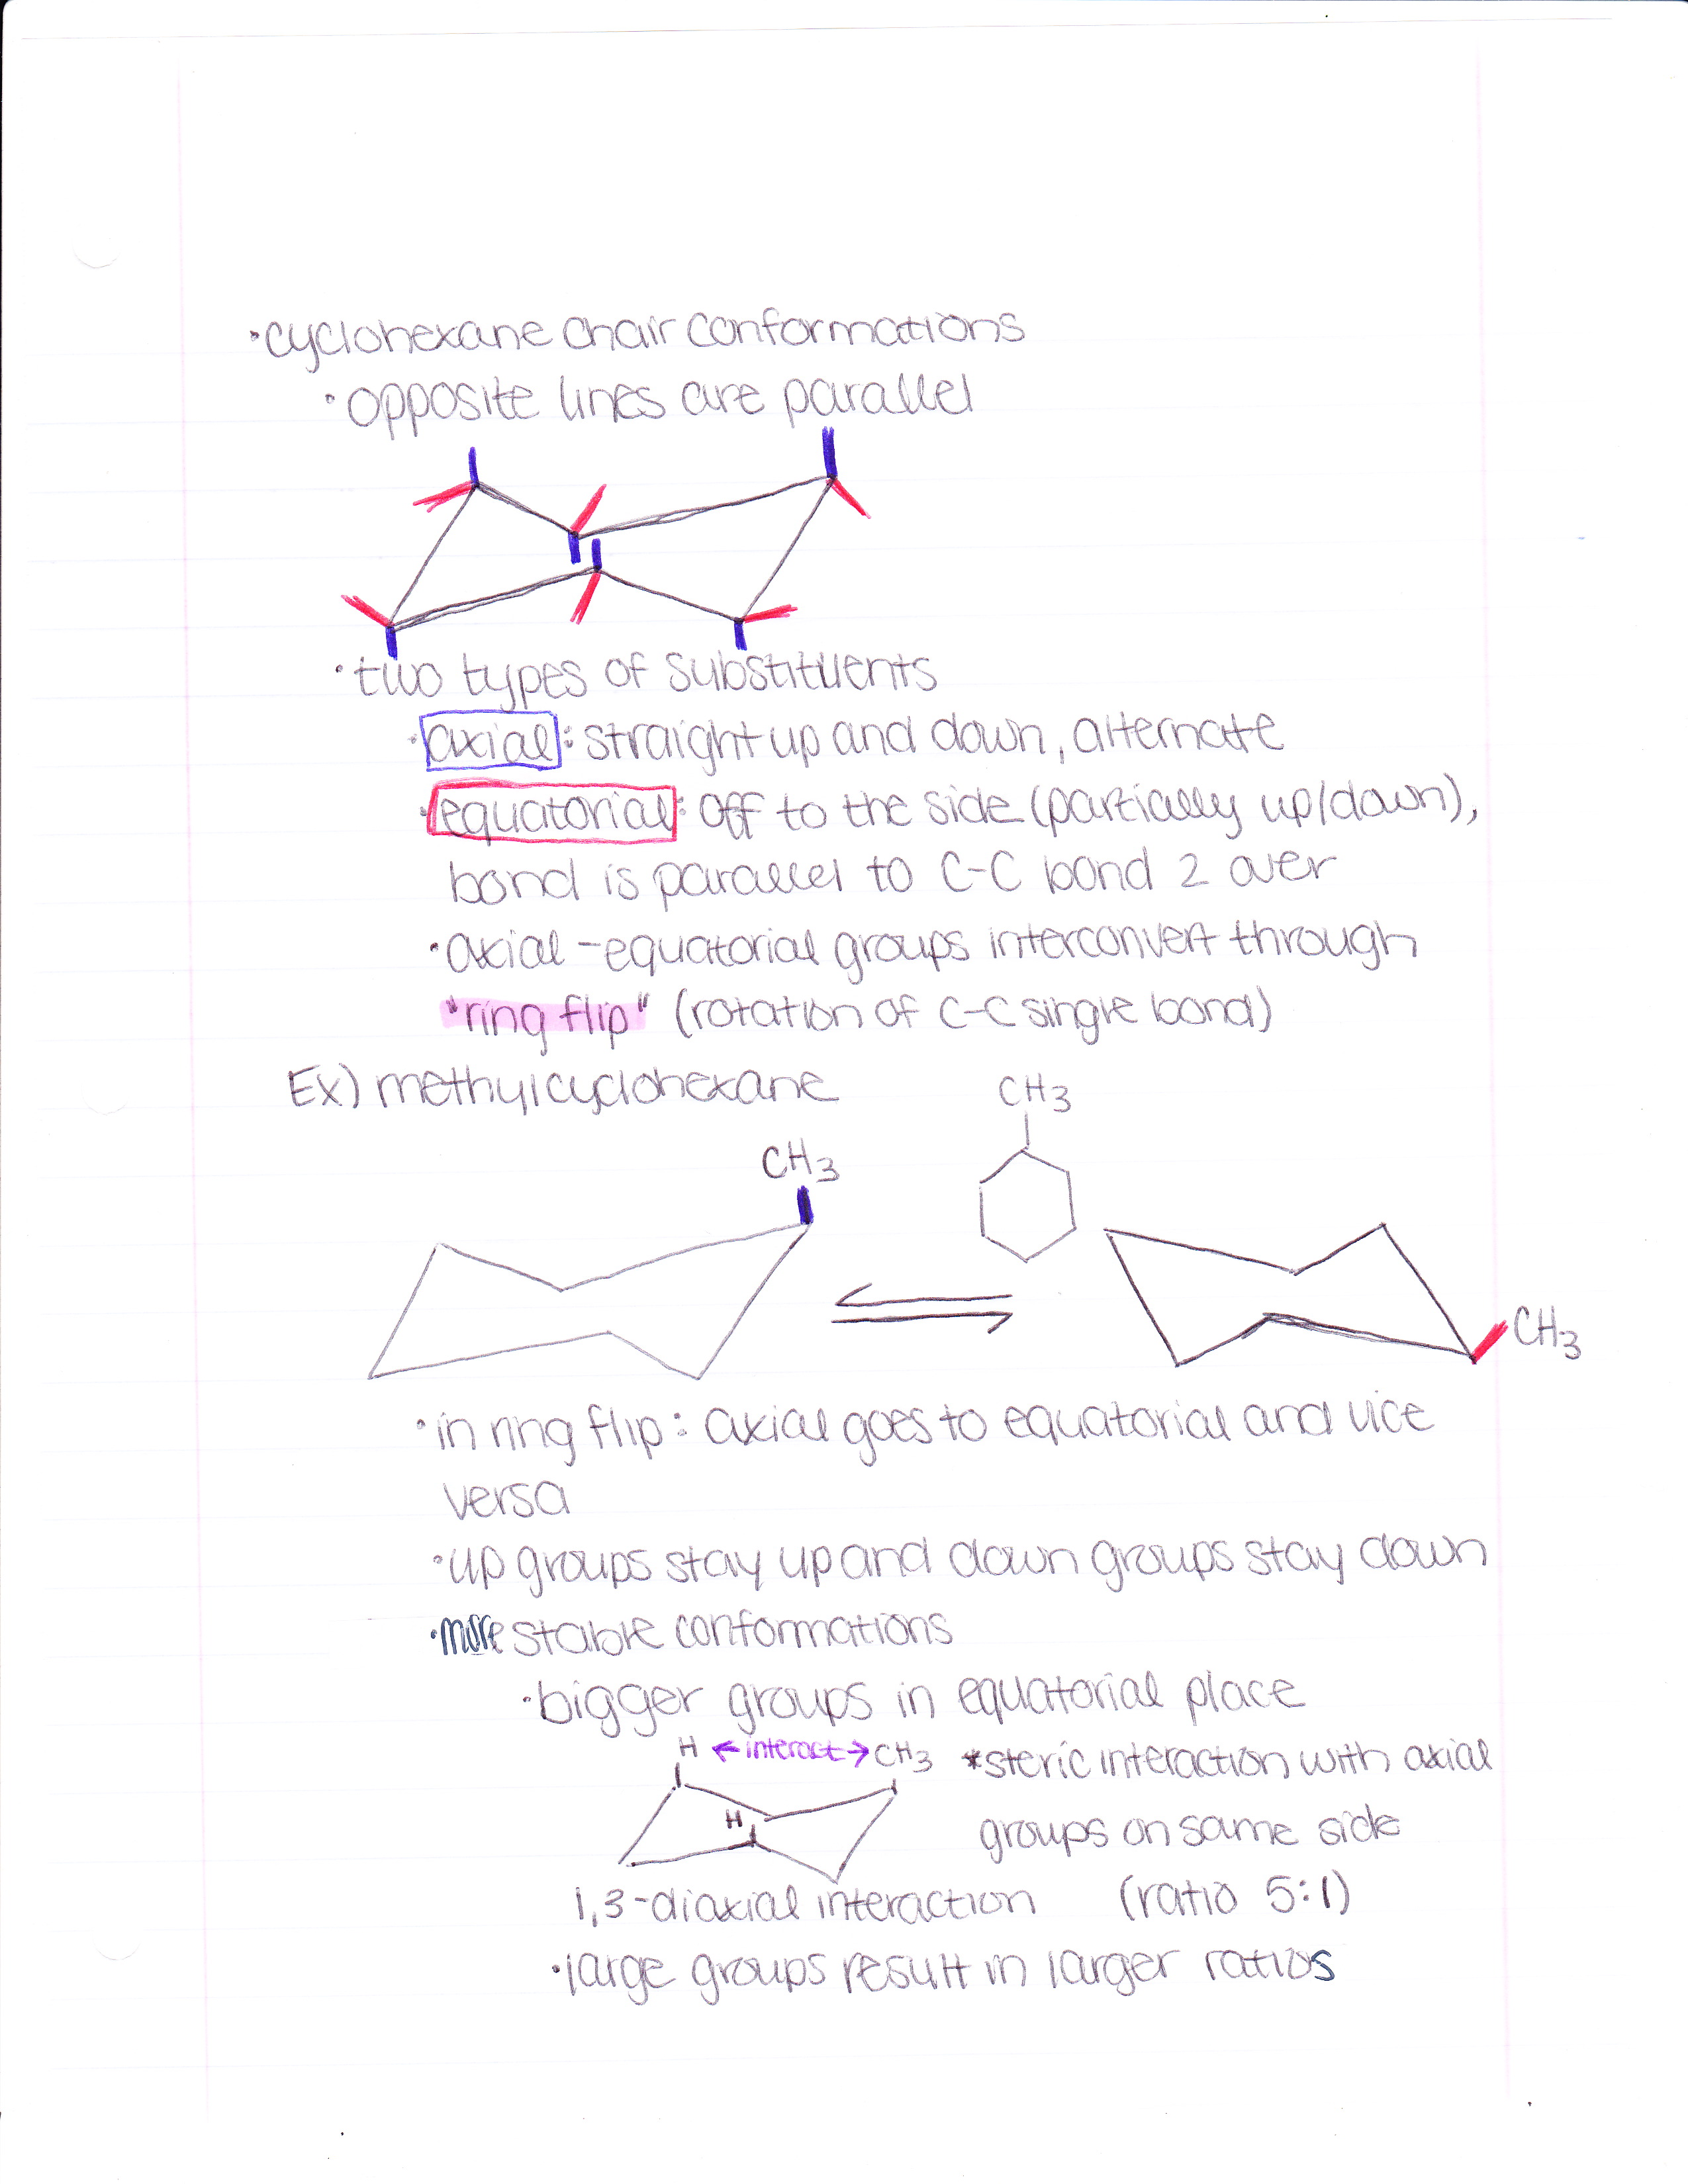 ·cyclohexane chair conformations
·opposite lines are parallel
·two types of substituents
·axial: straight up and down, alternate
·equatorial: off to the side (partially up/down),
bond is parallel to C-C bond 2 over
·axial-equatorial groups interconvert through
"ring flip" (rotation of C-C single bond)
Ex) methylcyclohexane
CH3
CH3
CH3
·in ring flip: axial goes to equatorial and vice
versa
·up groups stay up and down groups stay down
·more stable conformations
·bigger groups in equatorial place
H ←interact→ CH3 *steric interaction with axial
H
groups on same side
1,3-diaxial interaction (ratio 5:1)
·large groups result in larger ratios